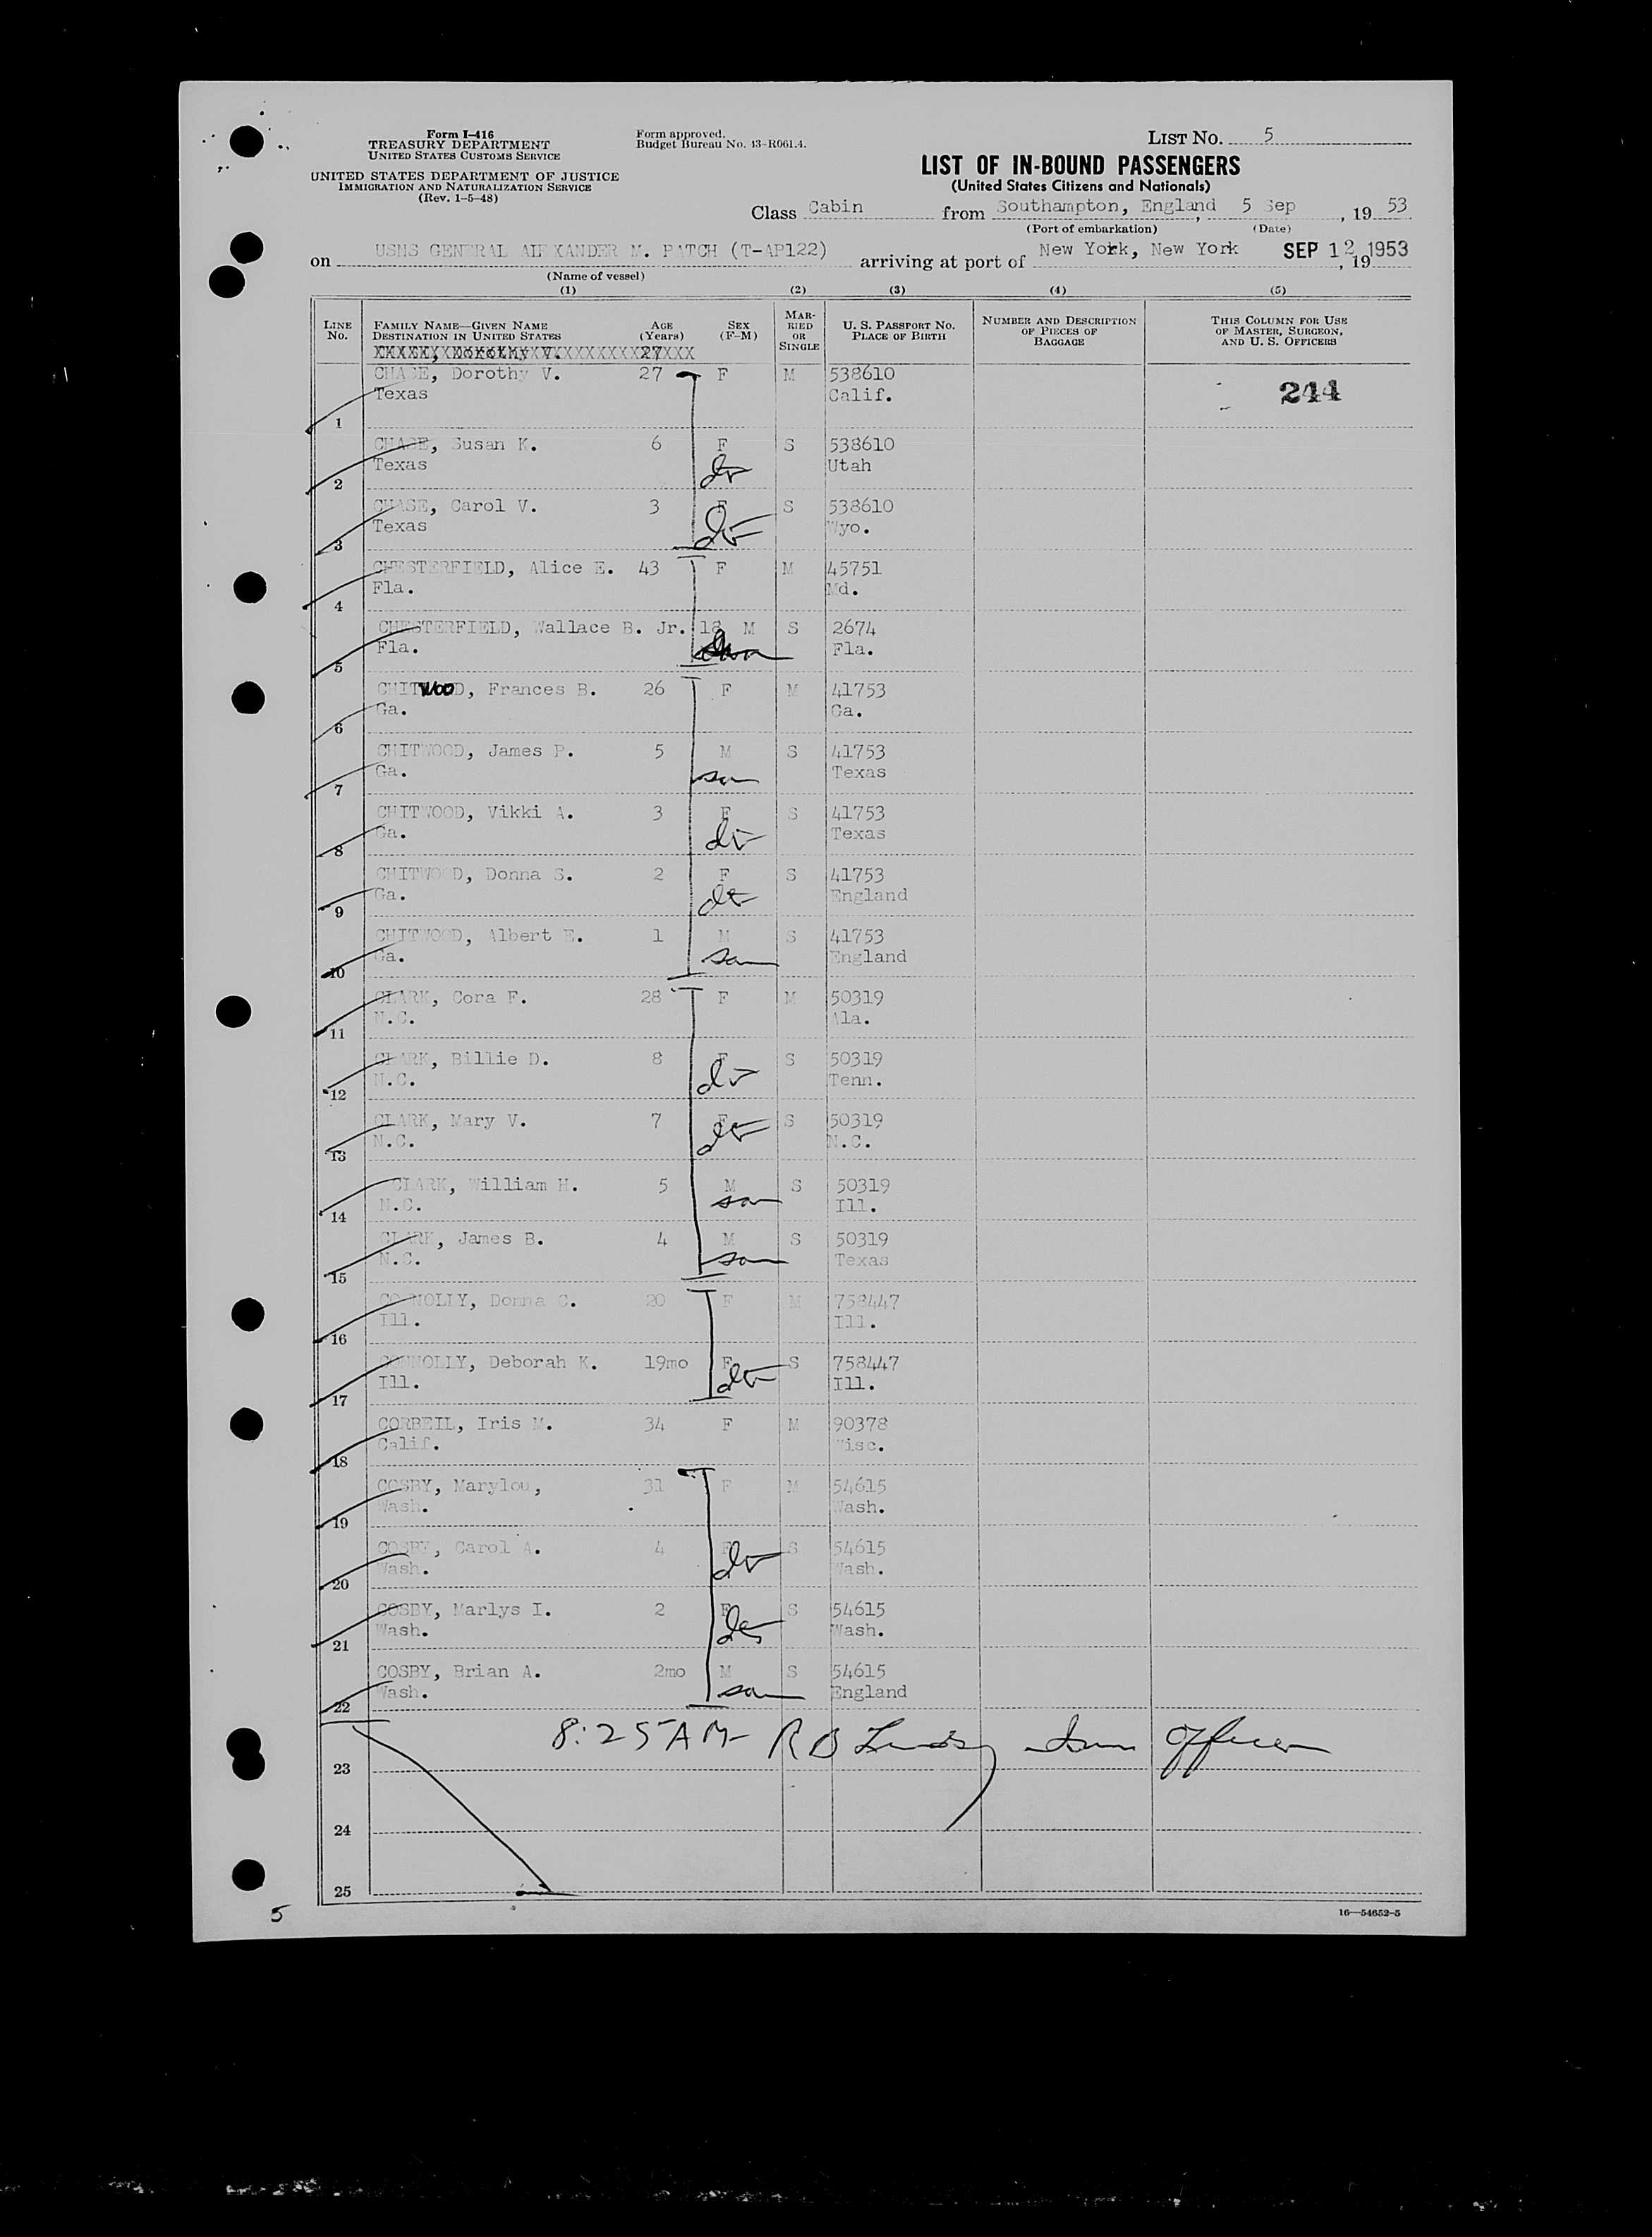 Form I-416
TREASURY DEPARTMENT
UNITED STATES CUSTOMS SERVICE
UNITED STATES DEPARTMENT OF JUSTICE
IMMIGRATION AND NATURALIZATION SERVICE
(Rev. 1-5-48)
Form approved.
Budget Bureau No. 43-R061.4.
LIST NO. 5
LIST OF IN-BOUND PASSENGERS
(United States Citizens and Nationals)
Class Cabin from Southampton, England, 5 Sep, 19 53
(Port of embarkation) (Date)
on USNS GENERAL ALEXANDER M. PATCH (T-AP122) arriving at port of New York, New York SEP 12 1953, 19
(Name of vessel)
(1) (2) (3) (4) (5)
LINE NO. FAMILY NAME—GIVEN NAME DESTINATION IN UNITED STATES AGE (Years) SEX (F-M) MARRIED OR SINGLE U. S. PASSPORT NO. PLACE OF BIRTH NUMBER AND DESCRIPTION OF PIECES OF BAGGAGE THIS COLUMN FOR USE OF MASTER, SURGEON, AND U. S. OFFICERS
Dorothy V. 27
CHASE, Dorothy V. 27 F M 538610 244
1 Texas Calif.
CHASE, Susan K. 6 F S 538610
2 Texas Utah
CHASE, Carol V. 3 F S 538610
3 Texas Wyo.
CHESTERFIELD, Alice E. 43 F M 45751
4 Fla. Md.
CHESTERFIELD, Wallace B. Jr. 18 M S 2674
5 Fla. Fla.
CHITWOOD, Frances B. 26 F M 41753
6 Ga. Ga.
CHITWOOD, James P. 5 M S 41753
7 Ga. son Texas
CHITWOOD, Vikki A. 3 F S 41753
8 Ga. Texas
CHITWOOD, Donna S. 2 F S 41753
9 Ga. England
CHITWOOD, Albert E. 1 M S 41753
10 Ga. son England
CLARK, Cora F. 28 F M 50319
11 N.C. Ala.
CLARK, Billie D. 8 F S 50319
12 N.C. Tenn.
CLARK, Mary V. 7 F S 50319
13 N.C. N.C.
CLARK, William H. 5 M S 50319
14 N.C. son Ill.
CLARK, James B. 4 M S 50319
15 N.C. son Texas
CONNOLLY, Donna C. 20 F M 758447
16 Ill. Ill.
CONNOLLY, Deborah K. 19mo F S 758447
17 Ill. Ill.
CORBEIL, Iris M. 34 F M 90378
18 Calif. Wisc.
COSBY, Marylou, 31 F M 54615
19 Wash. Wash.
COSBY, Carol A. 4 F S 54615
20 Wash. Wash.
COSBY, Marlys I. 2 F S 54615
21 Wash. Wash.
COSBY, Brian A. 2mo M S 54615
22 Wash. son England
8:25 AM- R B Officer
23
24
25
5
16—54652-5